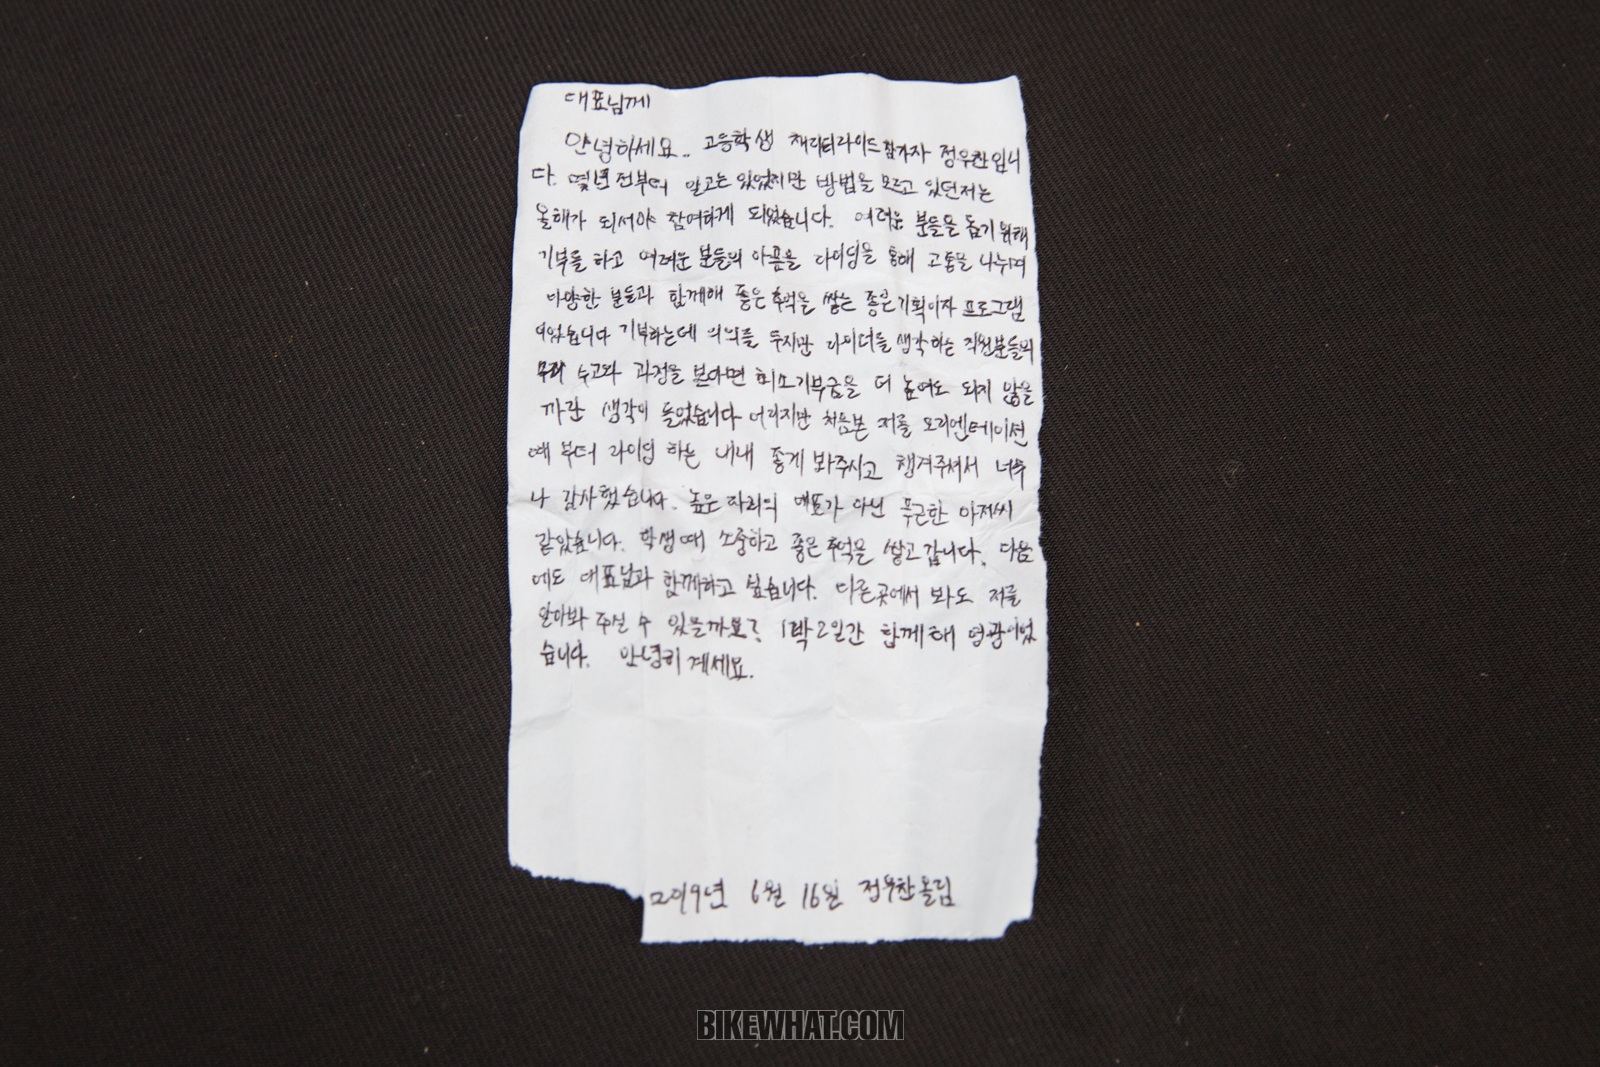 대표님께
안녕하세요. 고등학생 채리티라이드참가자 정우찬입니
다. 몇년전부터 알고는 있었지만 방법을 모르고 있던저는
올해가 되서야 참여하게 되었습니다. 어려운 분들을 돕기위해
기부를 하고 어려운 분들의 아픔을 라이딩을 통해 고통을 나누며
다양한 분들과 함께해 좋은추억을 쌓는 좋은기획이자 프로그램
이었습니다 기부하는데 의의를 두지만 라이더를 생각하는 직원분들의
수고와 과정을 보아면 최소기부금을 더 높여도 되지 않을
까란 생각이 들었습니다 어리지만 처음본 저를 오리엔테이션
때 부터 라이딩 하는 내내 좋게 봐주시고 챙겨주셔서 너무
나 감사했습니다. 높은 자리의 대표가 아닌 푸근한 아저씨
같았습니다. 학생때 소중하고 좋은추억을 쌓고갑니다. 다음
에도 대표님과 함께하고 싶습니다. 다른곳에서 봐도 저를
알아봐 주실 수 있을까요? 1박2일간 함께해 영광이었
습니다. 안녕히계세요.
2019년 6월 16일 정우찬올림
BIKEWHAT.COM